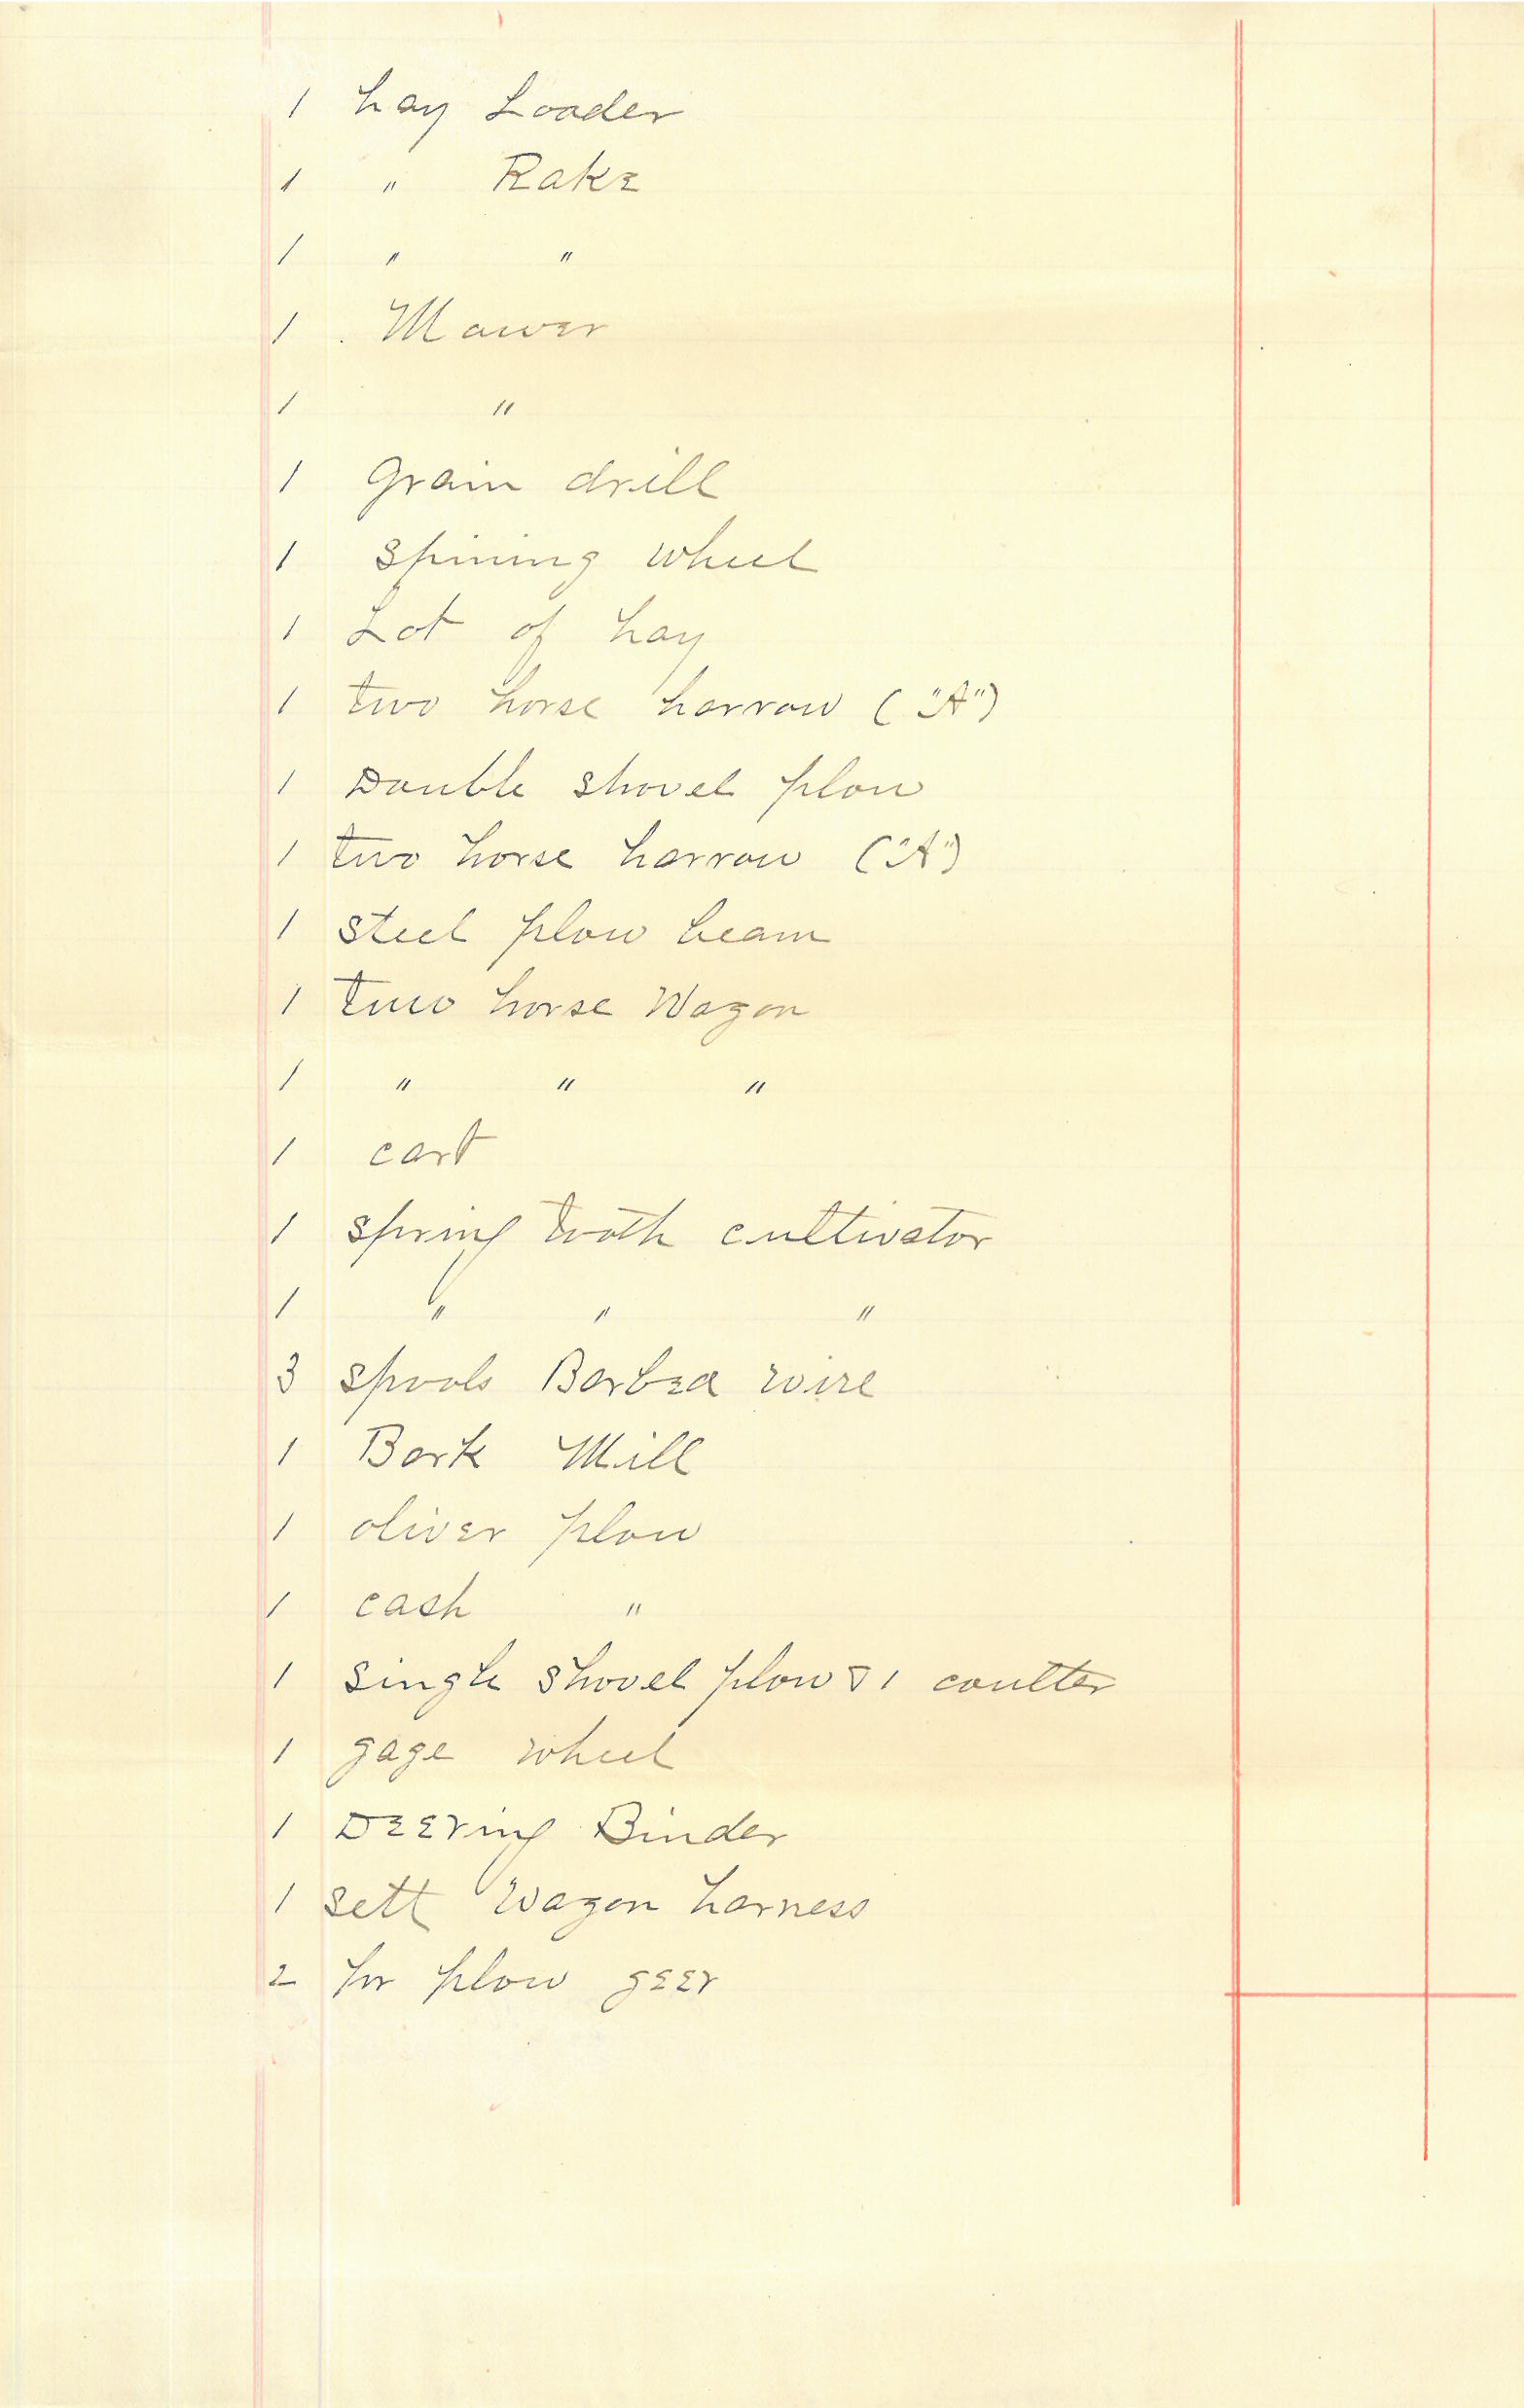 1 hay Loader
1 " Rake
1 " "
1 Mower
1 "
1 Grain drill
1 Spining wheel
1 Lot of hay
1 two horse harrow ("A")
1 Double shovel plow
1 two horse harrow ("A")
1 Steel plow beam
1 two horse Wagon
1 " " "
1 cart
1 spring tooth cultivator
1 " " "
3 spools Barbed wire
1 Bark Mill
1 oliver plow
1 cash "
1 Single shovel plow & 1 coulter
1 gage wheel
1 Deering Binder
1 sett Wagon harness
2 pr plow geer